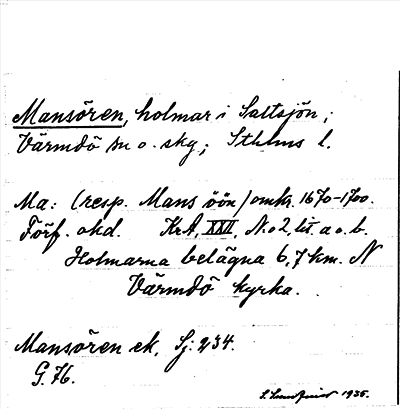 Mansören, holmar i Saltsjön,
Värmdö sn o. skg; Sthlms l.
Ma: (resp. Mans öön) omkr. 1670-1700.
Förf. okd. KrA, XXII, No 2, lit. a o. b.
Holmarna belägna 6,7 km. N
Värmdö kyrka.
Mansören ek. Sj: 234.
G. 76.
S. 1935.